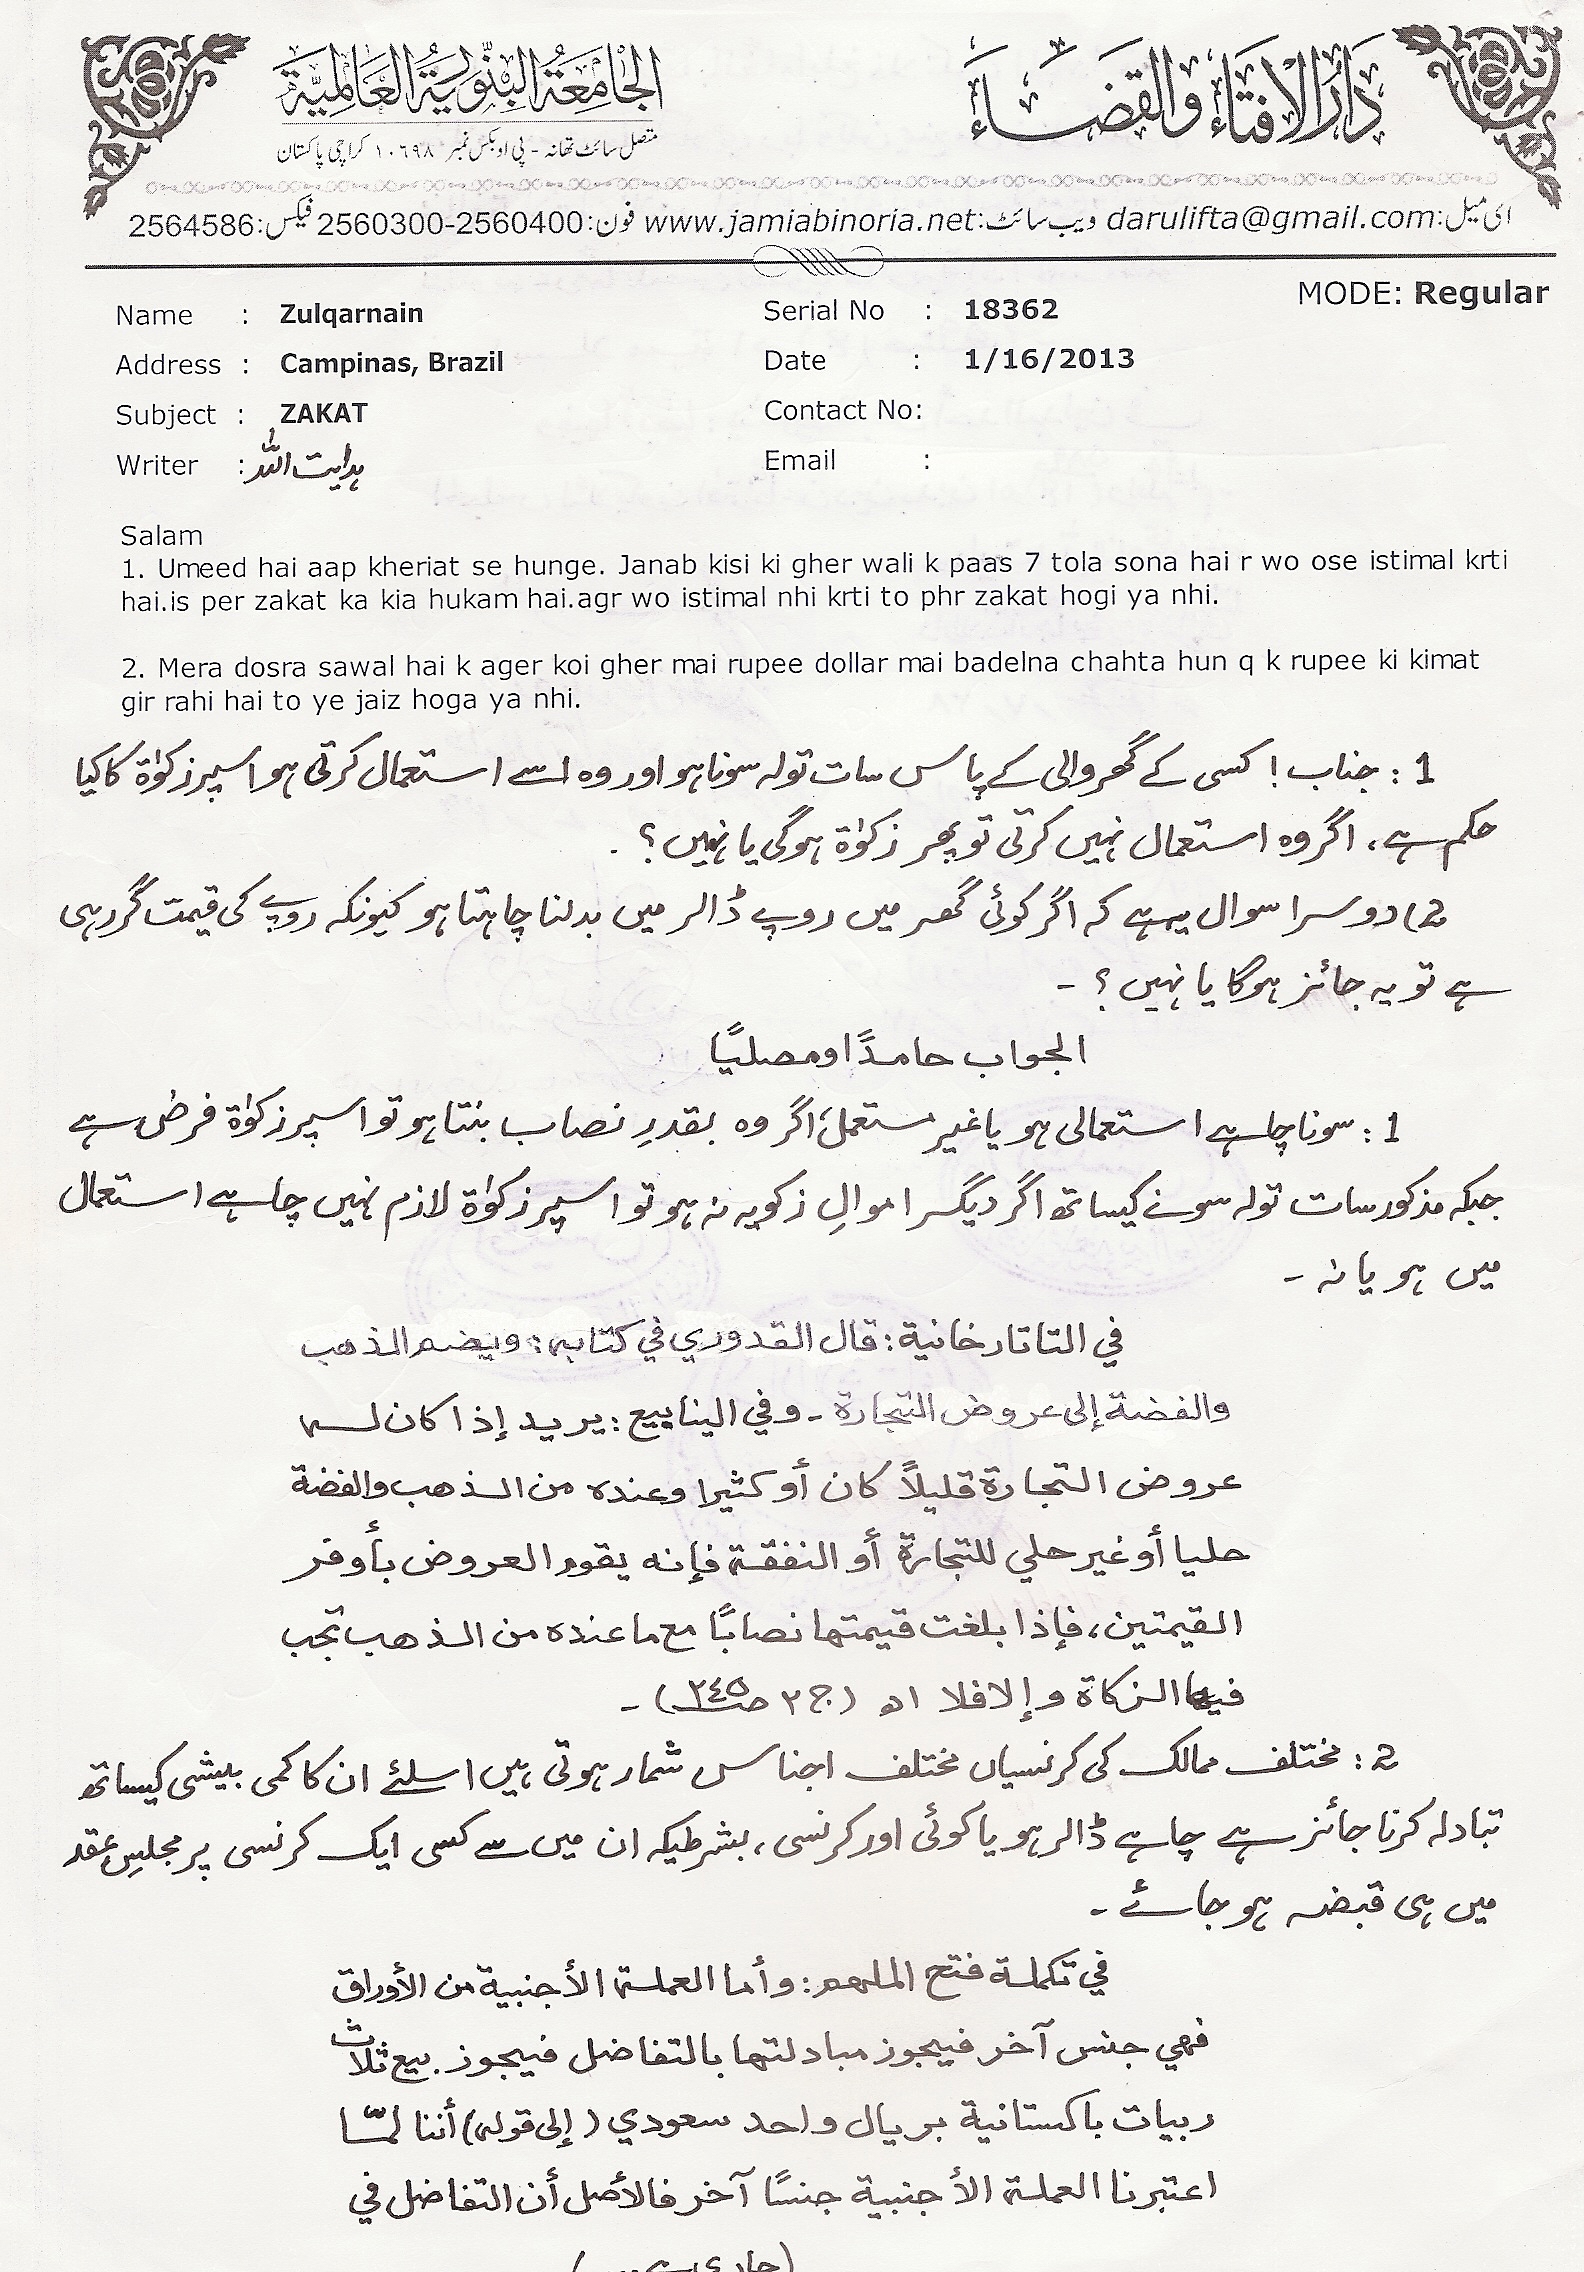 دَارُ الافتَاء والقضَاء
الجَامِعَةُ البنّوريَة العَالميَّة
متصل سائٹ تھانہ - پی او بکس نمبر ١٠٦٩٨ کراچی پاکستان
ای میل:darulifta@gmail.com ویب سائٹ:www.jamiabinoria.net فون:2560300-2560400 فیکس:2564586
MODE: Regular
Name : Zulqarnain Serial No : 18362
Address : Campinas, Brazil Date : 1/16/2013
Subject : ZAKAT Contact No:
Writer : ہدایت اللہ Email :
Salam
1. Umeed hai aap kheriat se hunge. Janab kisi ki gher wali k paas 7 tola sona hai r wo ose istimal krti
hai.is per zakat ka kia hukam hai.agr wo istimal nhi krti to phr zakat hogi ya nhi.
2. Mera dosra sawal hai k ager koi gher mai rupee dollar mai badelna chahta hun q k rupee ki kimat
gir rahi hai to ye jaiz hoga ya nhi.
1 : جناب ! کسی کے گھر والی کے پاس سات تولہ سونا ہو اور وہ اسے استعمال کرتی ہو اسپر زکوٰة کا کیا
حکم ہے، اگر وہ استعمال نہیں کرتی تو پھر زکوٰة ہوگی یا نہیں ؟ .
2) دوسرا سوال یہ ہے کہ اگر کوئی گھر میں روپے ڈالر میں بدلنا چاہتا ہو کیونکہ روپے کی قیمت گر رہی
ہے تو یہ جائز ہوگا یا نہیں ؟ -
الجواب حامدًا ومصلیًا
1 : سونا چاہے استعمالی ہو یا غیر مستعمل، اگر وہ بقدرِ نصاب بنتا ہو تو اسپر زکوٰة فرض ہے
جبکہ مذکور سات تولہ سونے کیساتھ اگر دیگر اموالِ زکویہ نہ ہو تو اسپر زکوٰة لازم نہیں چاہے استعمال
میں ہو یا نہ -
في التاتارخانية : قال القدوري في كتابه : ويضم الذهب
والفضة إلى عروض التجارة - وفي الينابيع : يريد إذا كان له
عروض التجارة قليلاً كان أو كثيرا وعنده من الذهب والفضة
حليا أو غير حلي للتجارة أو النفقة فإنه يقوم العروض بأوفر
القيمتين، فإذا بلغت قيمتها نصابًا مع ما عنده من الذهب تجب
فيها الزكاة وإلا فلا اھ (ج ٢ ص ٢٤٥) -
2 : مختلف ممالک کی کرنسیاں مختلف اجناس شمار ہوتی ہیں اسلئے ان کا کمی بیشی کیساتھ
تبادلہ کرنا جائز ہے چاہے ڈالر ہو یا کوئی اور کرنسی، بشرطیکہ ان میں سے کسی ایک کرنسی پر مجلسِ عقد
میں ہی قبضہ ہو جائے -
في تكملة فتح الملهم : وأما العملة الأجنبية من الأوراق
فهي جنس آخر فيجوز مبادلتها بالتفاضل فيجوز بيع ثلاث
ربيات باكستانية بريال واحد سعودي (إلى قوله) أننا لمّا
اعتبرنا العملة الأجنبية جنسًا آخر فالأصل أن التفاضل في
(جاری ہے...)